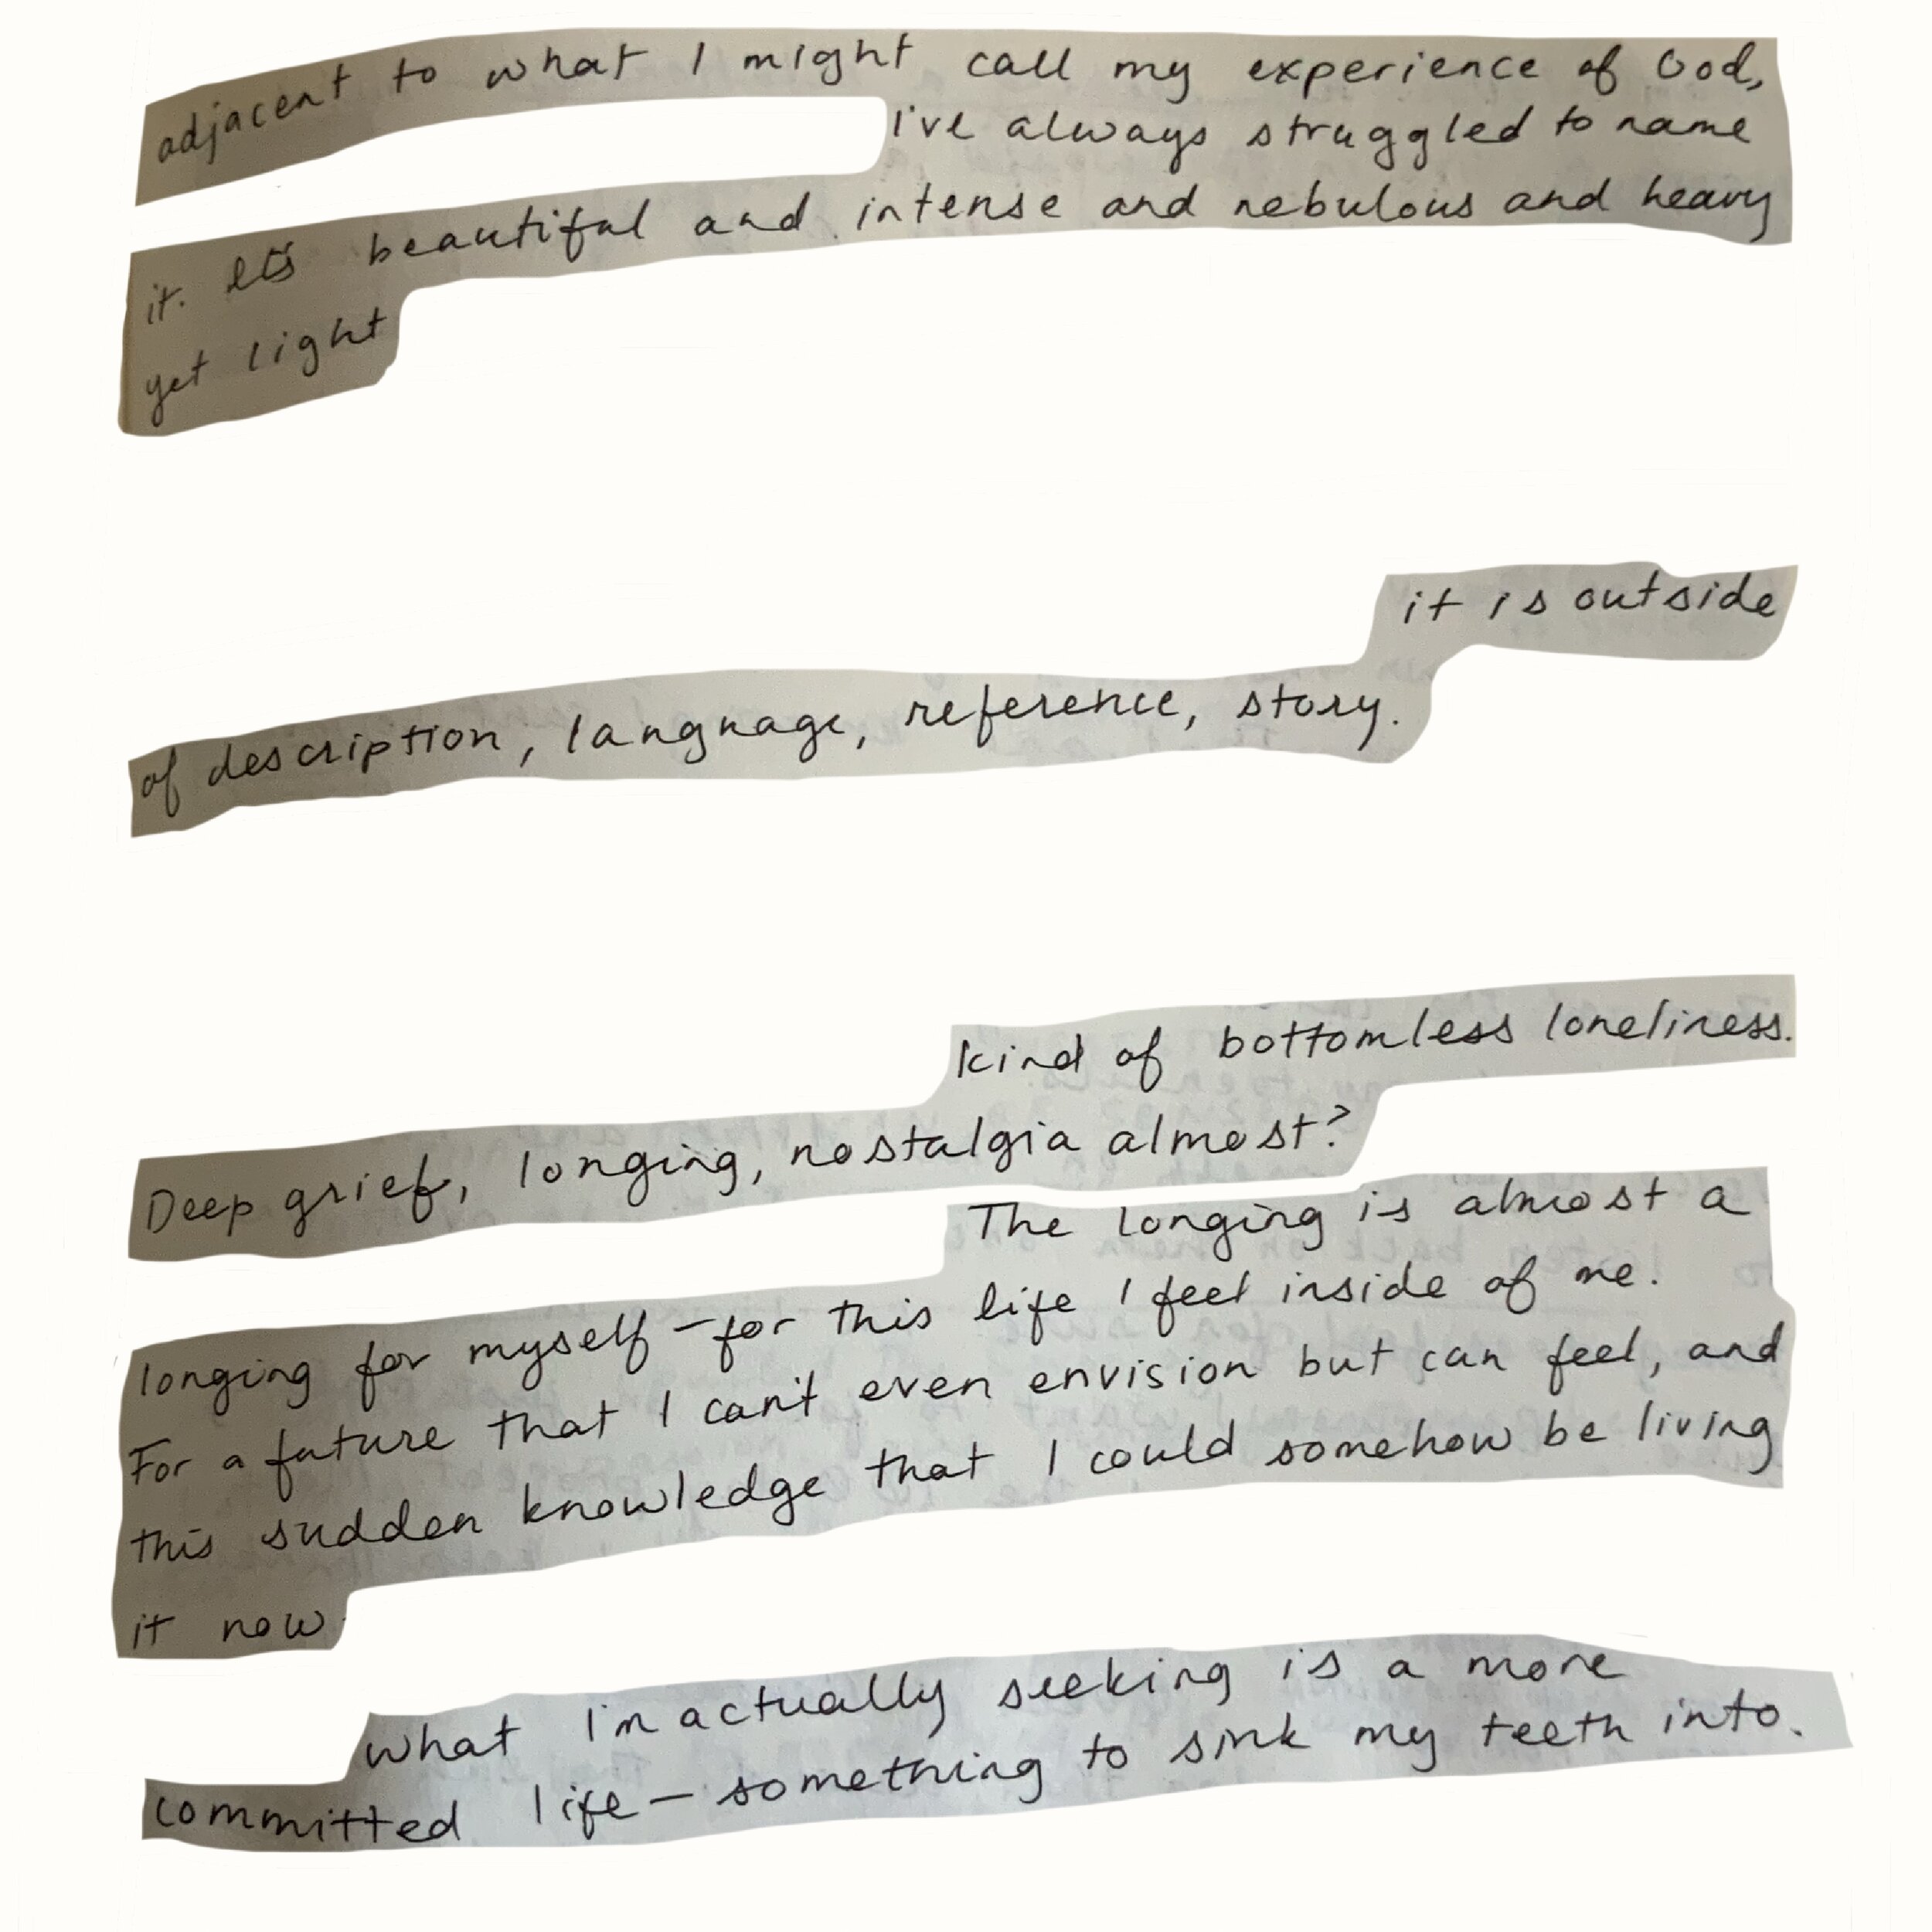 adjacent to what I might call my experience of God,
I've always struggled to name
it. It's beautiful and intense and nebulous and heavy
yet light
it is outside
of description, language, reference, story.
kind of bottomless loneliness.
Deep grief, longing, nostalgia almost?
The longing is almost a
longing for myself – for this life I feel inside of me.
For a future that I can't even envision but can feel, and
this sudden knowledge that I could somehow be living
it now
what I'm actually seeking is a more
committed life – something to sink my teeth into.